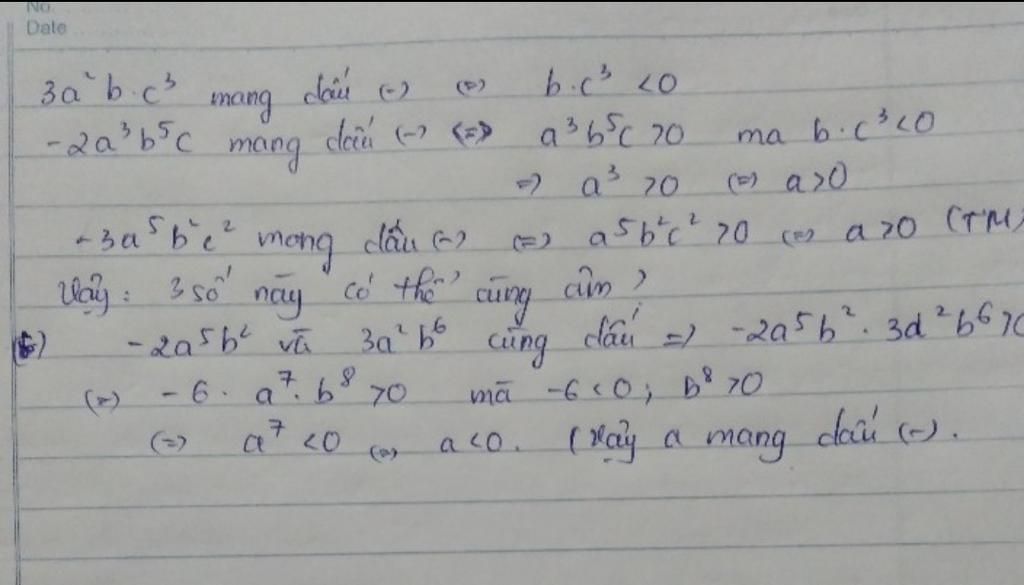 No.
Date
3a²b·c³ mang dấu (-) (=) b·c³ <0
-2a³b⁵c mang dấu (-) (=) a³b⁵c >0 ma b·c³<0
=) a³ >0 (=) a>0
-3a⁵b²c² mang dấu (-) (=) a⁵b²c² >0 (=) a>0 (TM)
Vậy: 3 số này có thể cùng âm)
-2a⁵b² và 3a²b⁶ cùng dấu =) -2a⁵b² · 3a²b⁶ >0
(=) -6 · a⁷ · b⁸ >0 mà -6<0; b⁸ >0
(=) a⁷ <0 (=) a<0. (Vậy a mang dấu (-).